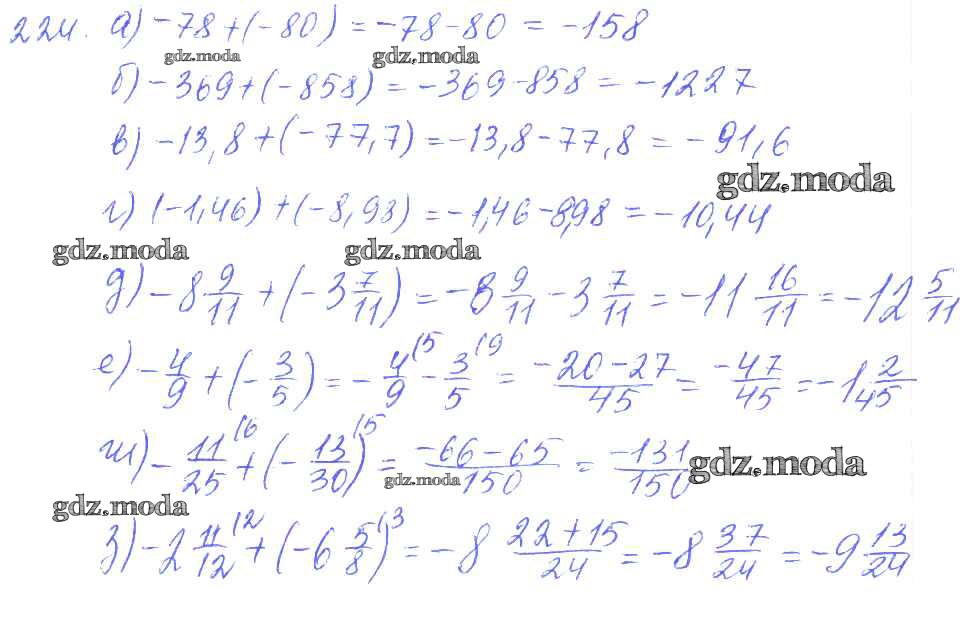 224. а) -78 + (-80) = -78 - 80 = -158
gdz.moda gdz.moda
б) -369 + (-858) = -369 - 858 = -1227
в) -13,8 + (-77,7) = -13,8 - 77,8 = -91,6
gdz.moda
г) (-1,46) + (-8,93) = -1,46 - 8,98 = -10,44
gdz.moda gdz.moda
д) -8 9/11 + (-3 7/11) = -8 9/11 - 3 7/11 = -11 16/11 = -12 5/11
е) -4/9 + (-3/5) = -4/9 (5 - 3/5 (9 = (-20-27)/45 = -47/45 = -1 2/45
ж) -11/25 (6 + (-13/30) (5 = (-66-65)/150 = -131/150
gdz.moda gdz.moda
gdz.moda
з) -2 11/12 (2 + (-6 5/8) (3 = -8 (22+15)/24 = -8 37/24 = -9 13/24